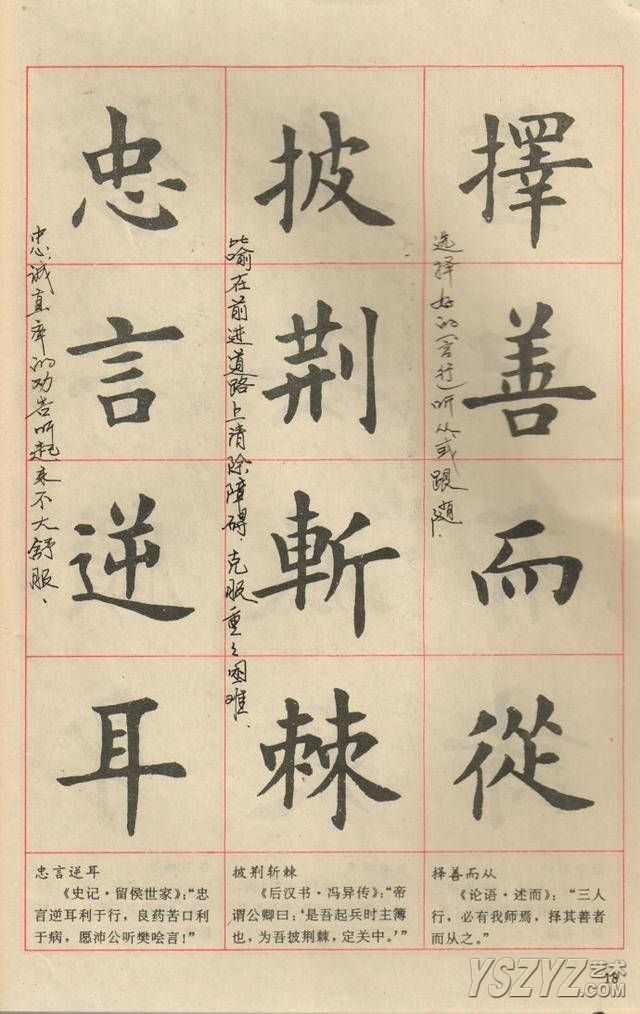 擇善而從
选择好的（善行）听从或跟随.
披荆斬棘
比喻在前进道路上清除障碍.克服重々困难.
忠言逆耳
忠诚直率的劝告听起来不大舒服.
择善而从
《论语·述而》：“三人
行，必有我师焉，择其善者
而从之。”
披荆斩棘
《后汉书·冯异传》：“帝
谓公卿曰：‘是吾起兵时主簿
也，为吾披荆棘，定关中。’”
忠言逆耳
《史记·留侯世家》：“忠
言逆耳利于行，良药苦口利
于病，愿沛公听樊哙言！”
18
YSZYZ艺术
.COM.CN